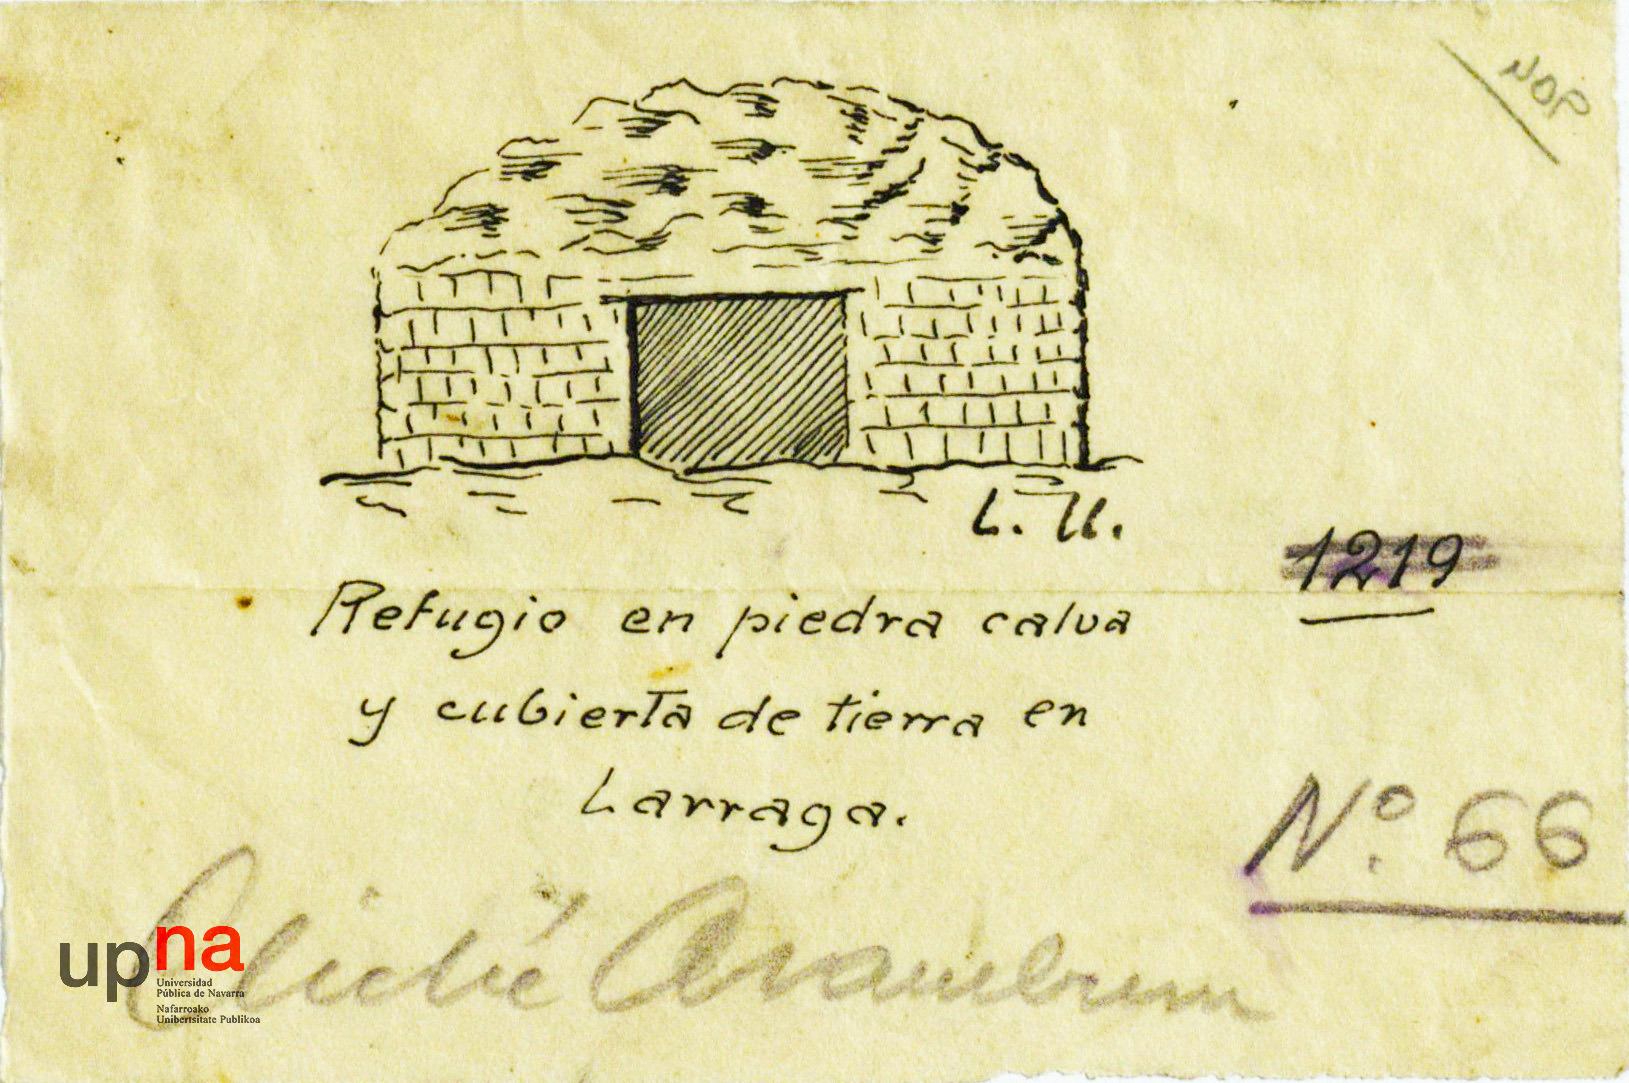 NOP
L. U.
1219
Refugio en piedra calva
y cubierta de tierra en
Larraga.
Nº. 66
Cliché
upna
Universidad
Pública de Navarra
Nafarroako
Unibertsitate Publikoa